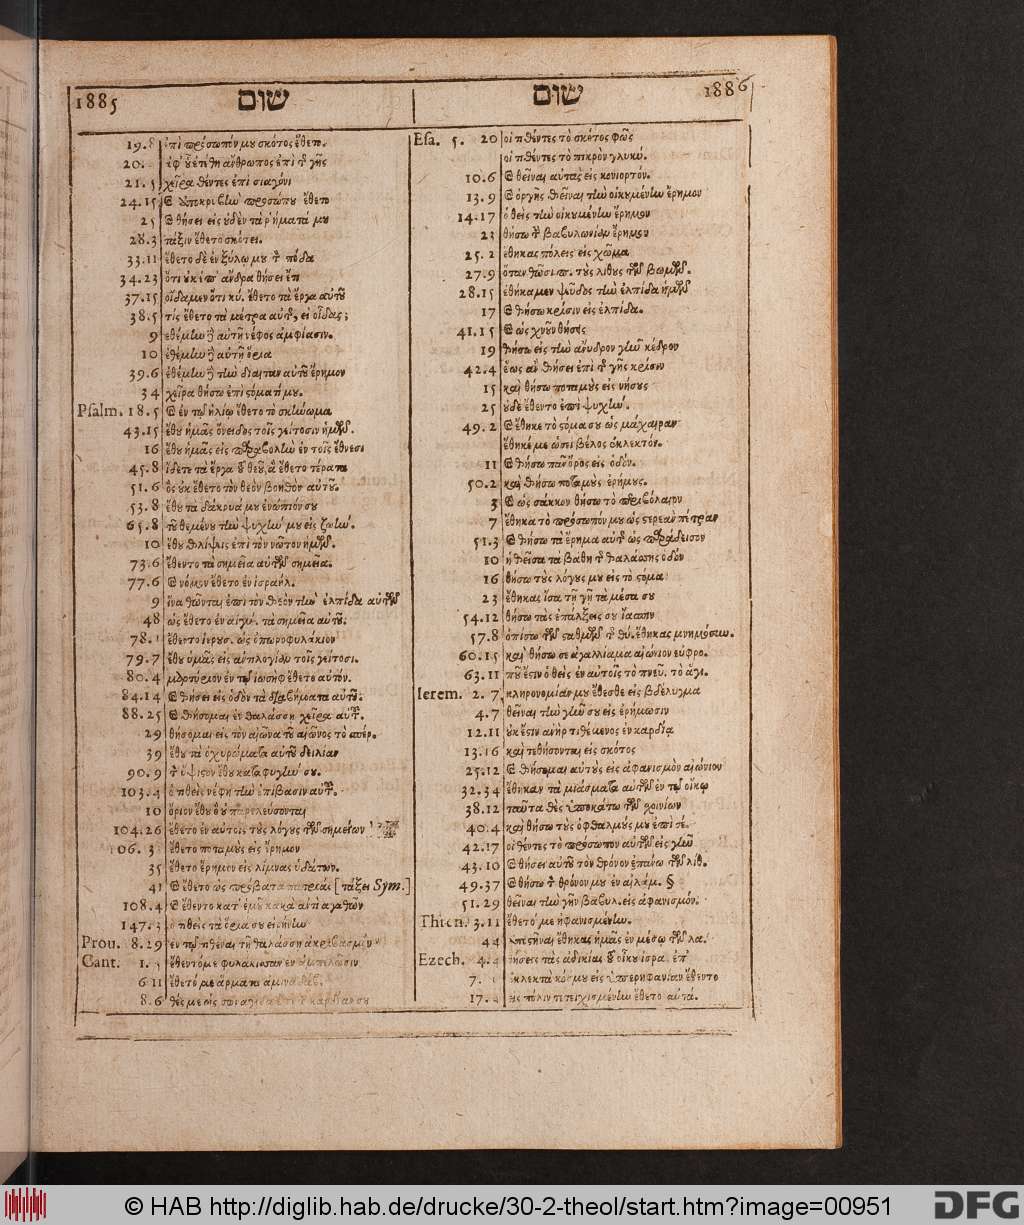 1885 שום
19.8 ἐπὶ πρόσωπόν μου σκότος ἔθετο.
20. ἐφ' οὗ ἐτέθη ἄνθρωπος ἐπὶ τῆς γῆς
21.5 χεῖρα θέντες ἐπὶ σιαγόνι
24.15 καὶ ἀποκρυβὴν προσώπου ἔθετο
25 καὶ θήσει εἰς οὐδὲν τὰ ῥήματά μου
28.3 τάξιν ἔθετο σκότει.
33.11 ἔθετο δὲ ἐν ξύλῳ μου τὸν πόδα
34.23 ὅτι οὐκ ἐπ' ἄνδρα θήσει ἔτι
37.15 οἴδαμεν ὅτι κύ. ἔθετο τὰ ἔργα αὐτοῦ
38.5 τίς ἔθετο τὰ μέτρα αὐτῆς, εἰ οἶδας;
9 ἐθέμην δὲ αὐτῇ νέφος ἀμφίασιν.
10 ἐθέμην δὲ αὐτῇ ὅρια
39.6 ἐθέμην δὲ τὴν δίαιταν αὐτοῦ ἔρημον
34 χεῖρα θήσω ἐπὶ στόματί μου.
Psalm. 18.5 καὶ ἐν τῷ ἡλίῳ ἔθετο τὸ σκήνωμα
43.15 ἔθου ἡμᾶς ὄνειδος τοῖς γείτοσιν ἡμῶν.
16 ἔθου ἡμᾶς εἰς παραβολὴν ἐν τοῖς ἔθνεσι
45.8 ἴδετε τὰ ἔργα τοῦ θεοῦ, ἃ ἔθετο τέρατα
51.6 ὃς οὐκ ἔθετο τὸν θεὸν βοηθὸν αὐτοῦ.
53.8 ἔθου τὰ δάκρυά μου ἐνώπιόν σου
65.8 τοῦ θεμένου τὴν ψυχήν μου εἰς ζωήν.
10 ἔθου θλίψεις ἐπὶ τὸν νῶτον ἡμῶν.
73.6 ἔθεντο τὰ σημεῖα αὐτῶν σημεῖα.
77.6 καὶ νόμον ἔθετο ἐν ἰσραήλ.
9 ἵνα θῶνται ἐπὶ τὸν θεὸν τὴν ἐλπίδα αὐτῶν
48 ὡς ἔθετο ἐν αἰγύ. τὰ σημεῖα αὐτοῦ.
78.1 ἔθεντο ἱερουσ. ὡς ὀπωροφυλάκιον
79.7 ἔθου ὑμᾶς εἰς ἀντιλογίαν τοῖς γείτοσι.
80.4 μαρτύριον ἐν τῷ ἰωσὴφ ἔθετο αὐτόν.
84.14 καὶ θήσει εἰς ὁδὸν τὰ διαβήματα αὐτοῦ.
88.25 καὶ θήσομαι ἐν θαλάσσῃ χεῖρα αὐτοῦ.
29 θήσομαι εἰς τὸν αἰῶνα τοῦ αἰῶνος τὸ σπέρ.
39 ἔθου τὰ ὀχυρώματα αὐτοῦ δειλίαν
90.9 τὸν ὕψιστον ἔθου καταφυγήν σου.
103.4 ὁ τιθεὶς νέφη τὴν ἐπίβασιν αὐτοῦ.
10 ὅριον ἔθου ὃ οὐ παρελεύσονται
104.26 ἔθετο ἐν αὐτοῖς τοὺς λόγους τῶν σημείων
106. 3 ἔθετο ποταμοὺς εἰς ἔρημον
35 ἔθετο ἔρημον εἰς λίμνας ὑδάτων.
41 καὶ ἔθετο ὡς πρόβατα πατριάς [τάξει Sym.]
108.4 καὶ ἔθεντο κατ' ἐμοῦ κακὰ ἀντὶ ἀγαθῶν
147.3 ὁ τιθεὶς τὰ ὅριά σου εἰρήνην
Prou. 8.29 ἐν τῷ τιθέναι τῇ θαλάσσῃ ἀκριβασμὸν
Cant. 1. ἔθεντό με φυλάκισσαν ἐν ἀμπελῶσιν
6 11 ἔθετό με ἅρματα ἀμιναδάβ.
8.6 θές με ὡς σφραγίδα ἐπὶ τὴν καρδίαν σου
שום 1886
Esa. 5. 20 οἱ τιθέντες τὸ σκότος φῶς
οἱ τιθέντες τὸ πικρὸν γλυκύ.
10.6 καὶ θεῖναι αὐτὰς εἰς κονιορτόν.
13.9 καὶ ὀργῆς θεῖναι τὴν οἰκυμένην ἔρημον
14.17 ὁ θεὶς τὴν οἰκυμένην ἔρημον
23 θήσω τὴν βαβυλωνίαν ἔρημον
25.2 ἔθηκας πόλεις εἰς χῶμα
27.9 ὅταν θῶσι π. τοὺς λίθους τῶν βωμῶν.
28.15 ἐθήκαμεν ψεῦδος τὴν ἐλπίδα ἡμῶν
17 καὶ θήσω κρίσιν εἰς ἐλπίδα.
41.15 καὶ ὡς χνοῦν θήσεις
19 θήσω εἰς τὴν ἄνυδρον γῆν κέδρον
42.4 ἕως ἂν θήσει ἐπὶ τῆς γῆς κρίσιν
15 καὶ θήσω ποταμοὺς εἰς νήσους
25 οὐδὲ ἔθεντο ἐπὶ ψυχήν.
49.2 καὶ ἔθηκε τὸ στόμα σου ὡς μάχαιραν
ἔθηκέ με ὡσεὶ βέλος ἐκλεκτόν.
11 καὶ θήσω πᾶν ὄρος εἰς ὁδόν.
50.2 καὶ θήσω ποταμοὺς ἐρήμους.
3 καὶ ὡς σάκκον θήσω τὸ περιβόλαιον
7 ἔθηκα τὸ πρόσωπόν μου ὡς στερεὰν πέτραν
51.3 καὶ θήσω τὰ ἔρημα αὐτῆς ὡς παράδεισον
10 ἡ θεῖσα τὰ βάθη τῆς θαλάσσης ὁδὸν
16 θήσω τοὺς λόγους μου εἰς τὸ στόμα
23 ἔθηκας ἴσα τῇ γῇ τὰ μέσα σου
54.12 θήσω τὰς ἐπάλξεις σου ἴασπιν
57.8 ὀπίσω τῶν σταθμῶν τῆς θύ. ἔθηκας μνημόσυν.
60.15 καὶ θήσω σε ἀγαλλίαμα αἰώνιον εὐφρο.
63.11 ποῦ ἐστιν ὁ θεὶς ἐν αὐτοῖς τὸ πνεῦ. τὸ ἅγι.
Ierem. 2. 7 κληρονομίαν μου ἔθεσθε εἰς βδέλυγμα
4.7 θεῖναι τὴν γῆν σου εἰς ἐρήμωσιν
12.11 οὐκ ἔστιν ἀνὴρ τιθέμενος ἐν καρδίᾳ
13.16 καὶ τεθήσονται εἰς σκότος
25.12 καὶ θήσομαι αὐτοὺς εἰς ἀφανισμὸν αἰώνιον
32.34 ἔθηκαν τὰ μιάσματα αὐτῶν ἐν τῷ οἴκῳ
38.12 ταῦτα θὲς ὑποκάτω τῶν σχοινίων
40.4 καὶ θήσω τοὺς ὀφθαλμούς μου ἐπὶ σέ.
42.17 οἱ θέντες τὸ πρόσωπον αὐτῶν εἰς γῆν
43.10 καὶ θήσει αὐτοῦ τὸν θρόνον ἐπάνω τῶν λίθ.
49.37 καὶ θήσω τὸν θρόνον μου ἐν αἰλάμ. §
51.29 θεῖναι τὴν γῆν βαβυλ. εἰς ἀφανισμόν.
Thren. 3.11 ἔθετό με ἠφανισμένην.
44 ἔθηκας ἡμᾶς ἐν μέσῳ τῶν λα.
Ezech. 4.4 θήσεις τὰς ἀδικίας τοῦ οἴκου ἰσρα. ἐπ'
7. ἐκλεκτὰ κόσμου εἰς ὑπερηφανίαν ἔθεντο
17.4 εἰς πόλιν τετειχισμένην ἔθετο αὐτά.
© HAB http://diglib.hab.de/drucke/30-2-theol/start.htm?image=00951 DFG